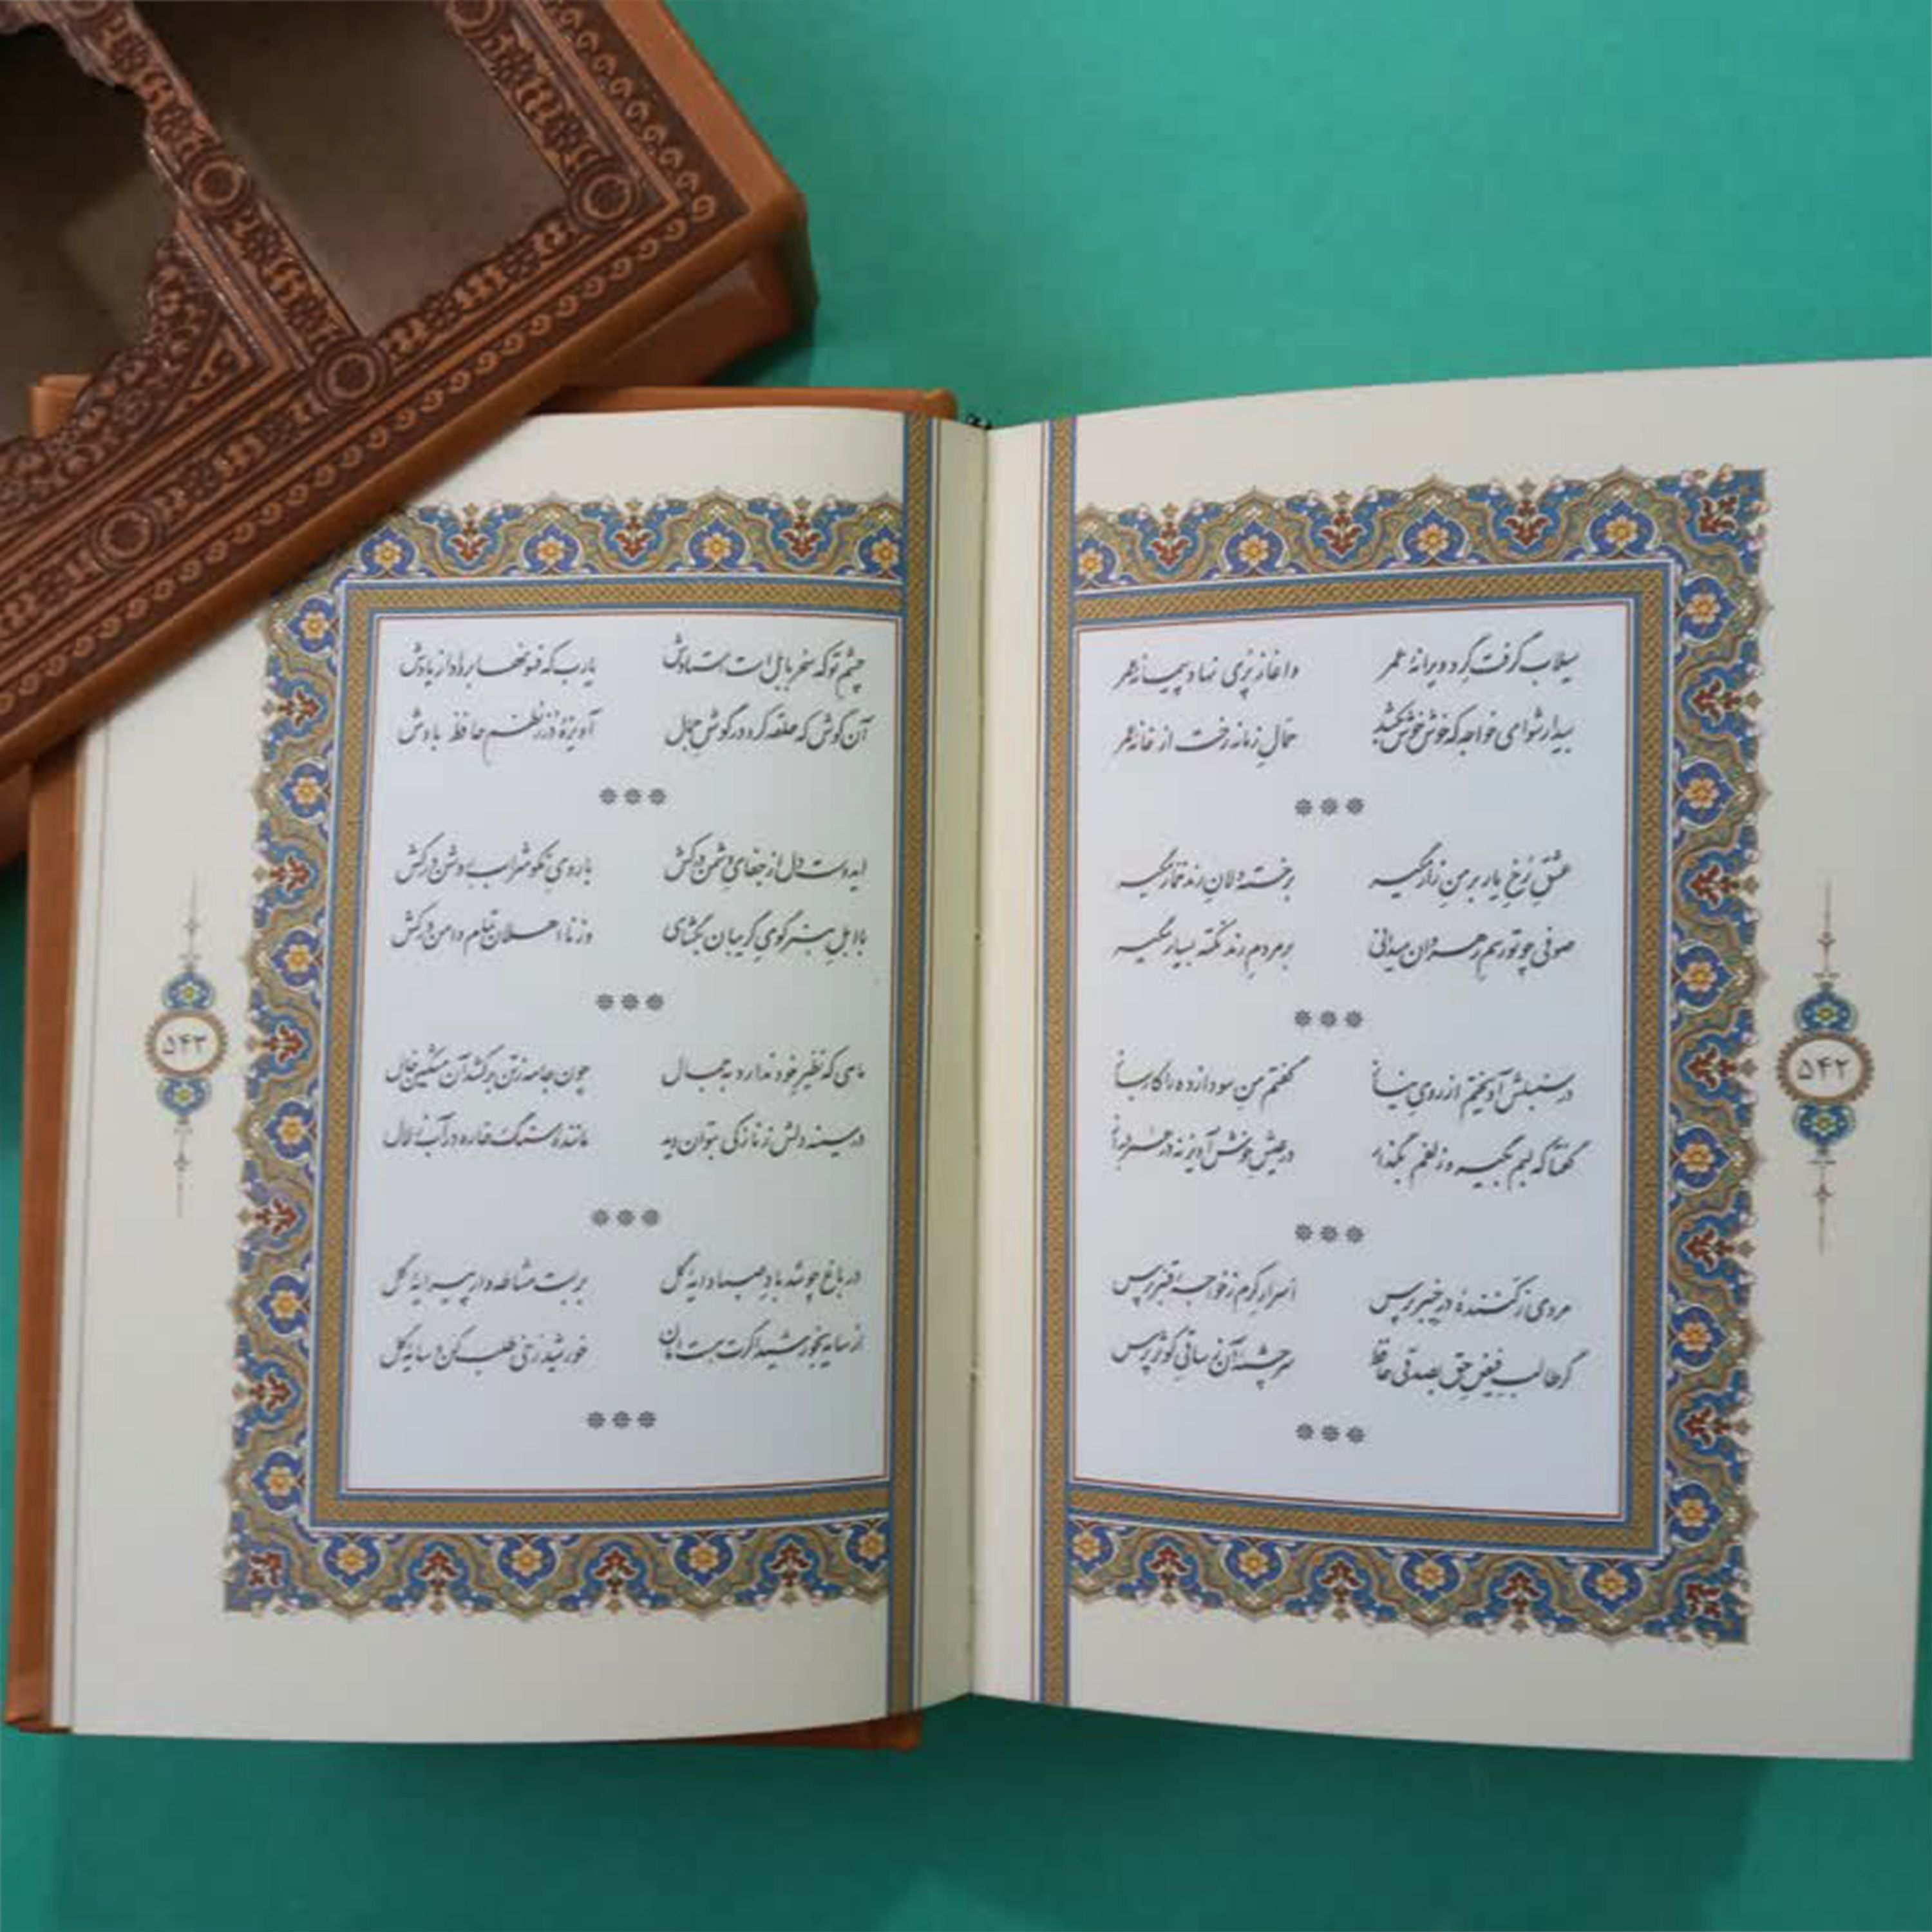 سیلاب گرفت گرد ویرانهٔ عمر واغاز پُری نهاد پیمانهٔ عمر
بیدار شو ای خواجه که خوش خوش بکشد حمّالِ زمانه رخت از خانهٔ عمر
عشقِ رُخِ یار بر منِ زار مگیر بر خسته دلانِ رند خمّار مگیر
صوفی چو تو رسم رهروان میدانی بر مردمِ رند نکته بسیار مگیر
در سنبلش آویختم از روی نیاز گفتم منِ سودازده را کار بساز
گفتا که لبم بگیر و زلفم بگذار در عیشِ خوش آویز نه در عمر دراز
مردی ز کنندهٔ درِ خیبر پرس اسرارِ کرم ز خواجهٔ قنبر پرس
گر طالبِ فیضِ حق بصدقی حافظ سرچشمهٔ آن ز ساقیِ کوثر پرس
۵۴۲
چشمِ تو که سحر بابل است استادش یارب که فسونها برواد از یادش
آن گوش که حلقه کرد در گوش جمال آویزهٔ دُر ز نظم حافظ بادش
ای دوست دل از جفایِ دشمن درکش با رویِ نکو شرابِ روشن درکش
با اهلِ هنر گوی گریبان بگشای وز نااهلان تمام دامن درکش
ماهی که نظیرِ خود ندارد به جمال چون جامه ز تن برکشد آن مشکین خال
در سینه دلش ز نازکی بتوان دید مانندهٔ سنگ خاره در آب زلال
در باغ چو شد بادِ صبا دایهٔ گل بربست مشاطه وار پیرایهٔ گل
از سایه بخورشید اگرت هست امان خورشید رخی طلب کن و سایهٔ گل
۵۴۳